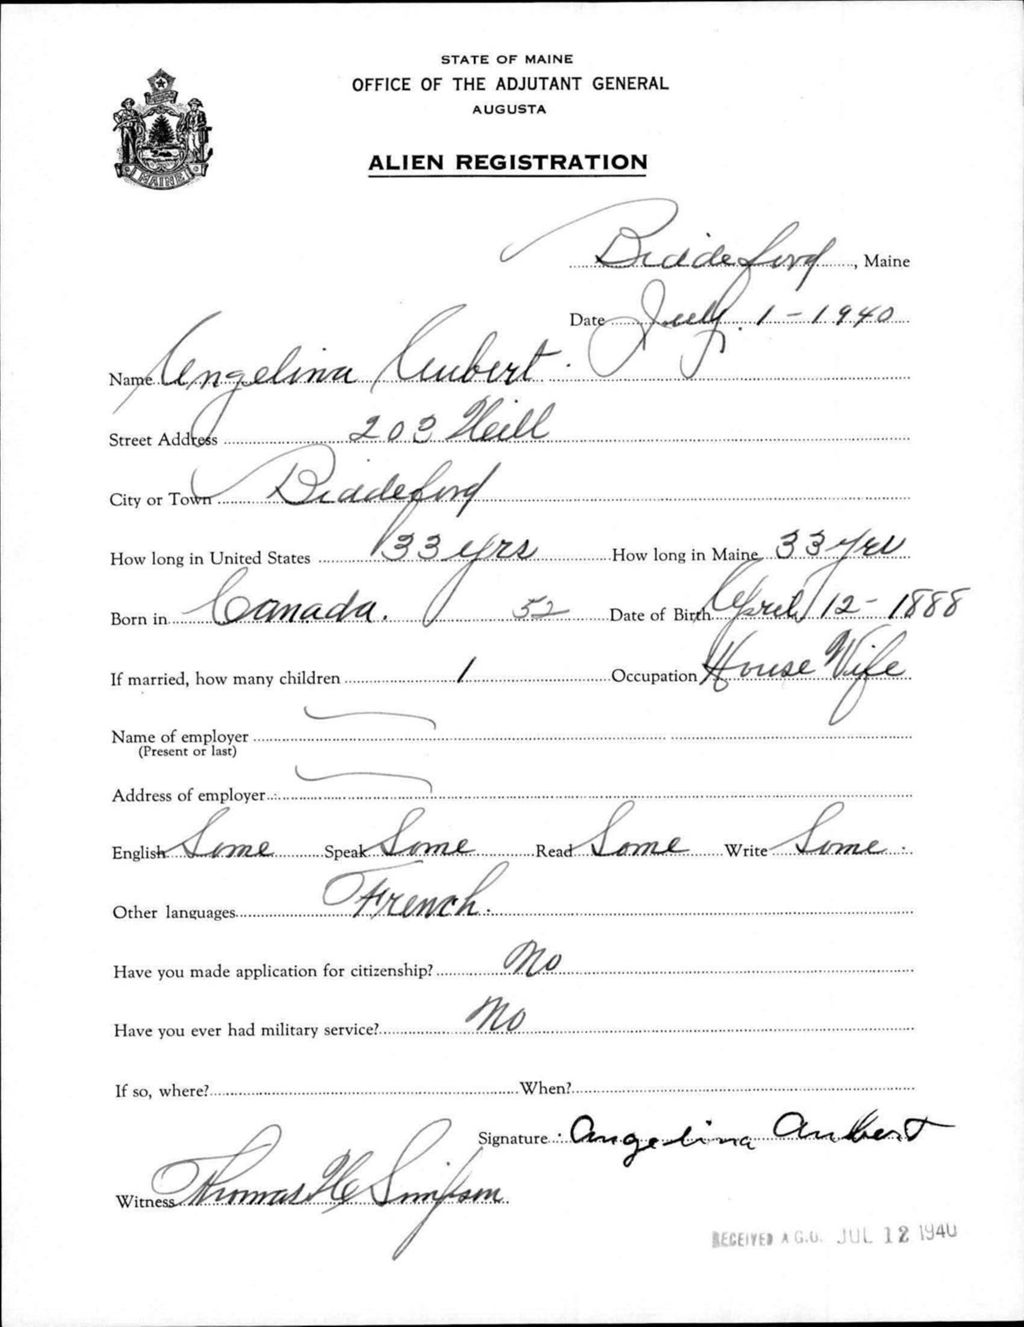 STATE OF MAINE
OFFICE OF THE ADJUTANT GENERAL
AUGUSTA
ALIEN REGISTRATION
MAINE
Biddeford, Maine
Date July. 1 - 1940
Name Angelina Aubert.
Street Address 203 Hill
City or Town Biddeford
How long in United States 33 yrs How long in Maine 33 yrs
Born in Canada. 52 Date of Birth April 12 - 1888
If married, how many children 1 Occupation House Wife
Name of employer
(Present or last)
Address of employer
English Some Speak Some Read Some Write Some.
Other languages French.
Have you made application for citizenship? No
Have you ever had military service? No
If so, where? When?
Signature Angelina Aubert
Witness Thomas H Simpson
RECEIVED A.G.O. JUL 12 1940